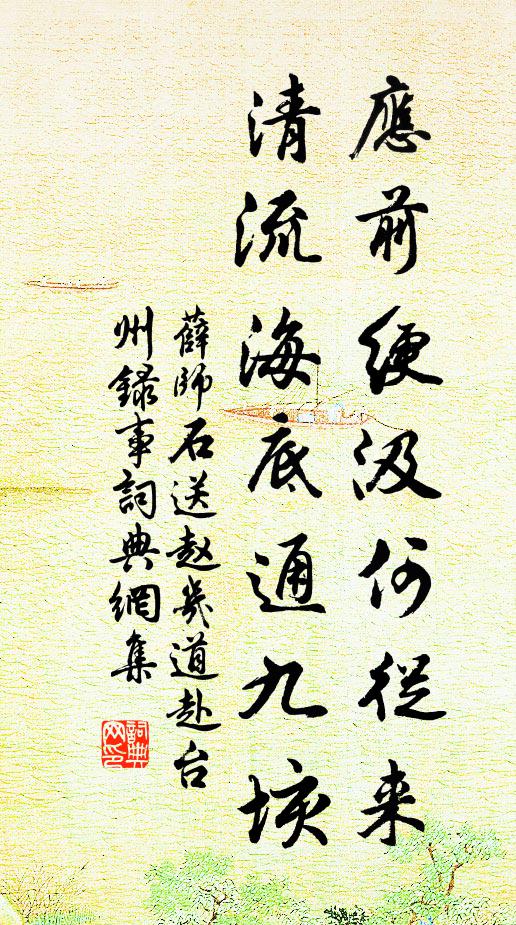 應前綆汲何從来
清流海底通九垓
薛師石送赵幾道赴台
州録事詞典網集
詞典
网印